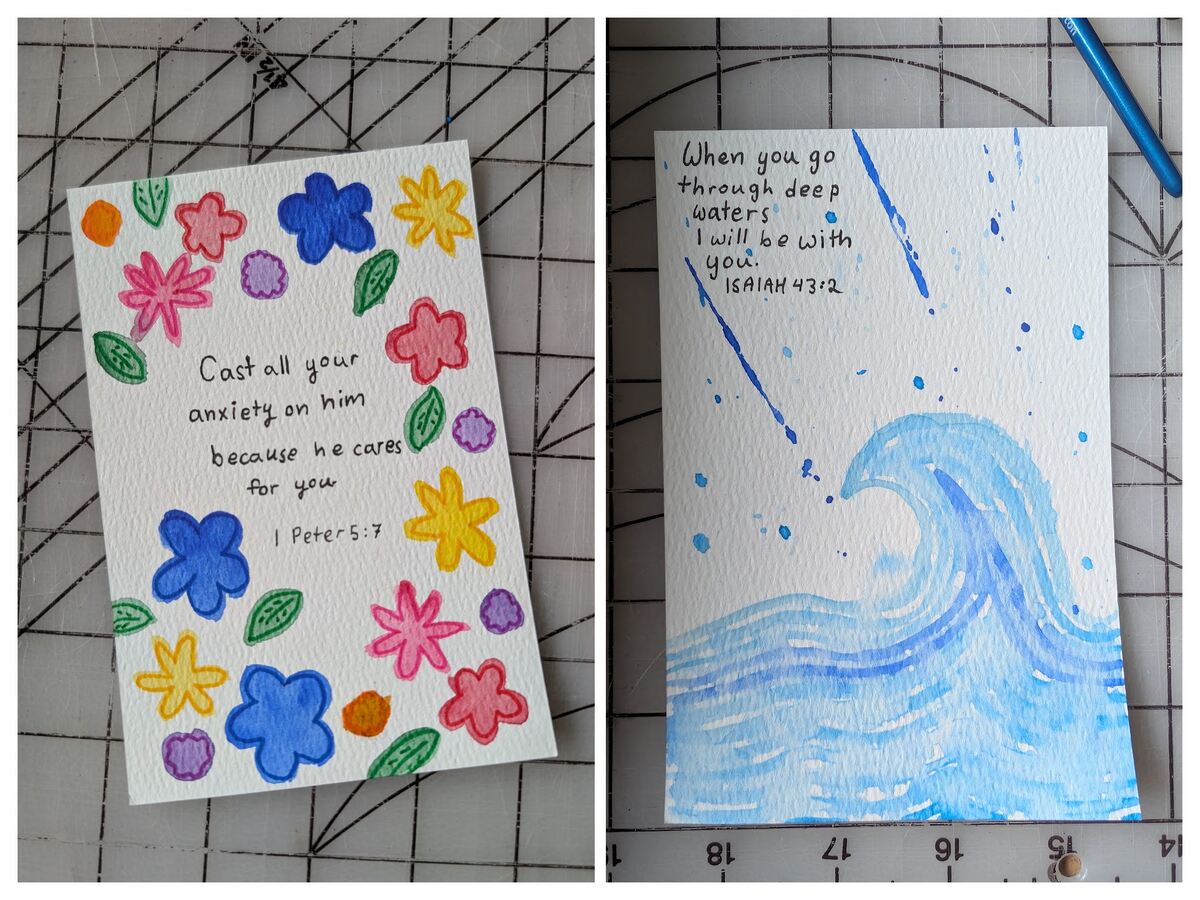 Cast all your
anxiety on him
because he cares
for you
1 Peter 5:7
When you go
through deep
waters
I will be with
you.
ISAIAH 43:2
18
17
16
15
14